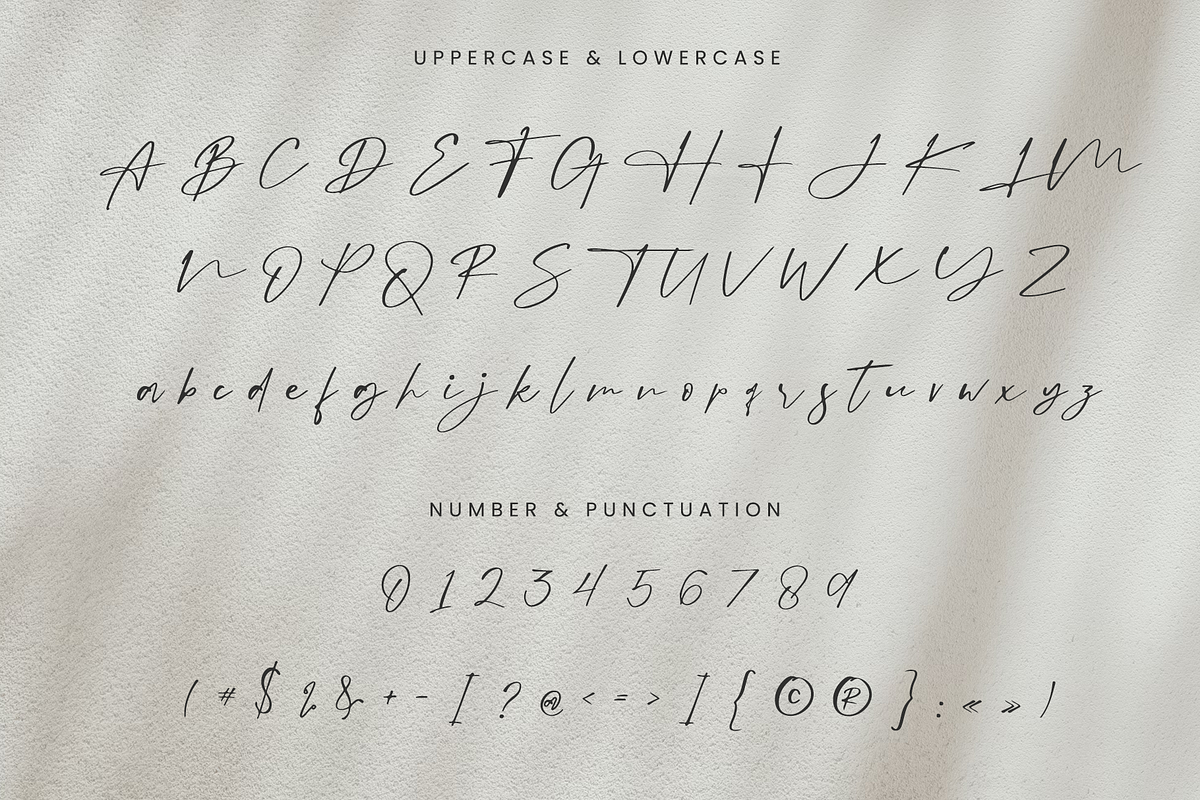 UPPERCASE & LOWERCASE
A B C D E F G H I J K L M
N O P Q R S T U V W X Y Z
a b c d e f g h i j k l m n o p q r s t u v w x y z
NUMBER & PUNCTUATION
0 1 2 3 4 5 6 7 8 9
( # $ % & + - [ ? @ < = > ] { © ® } : « » )